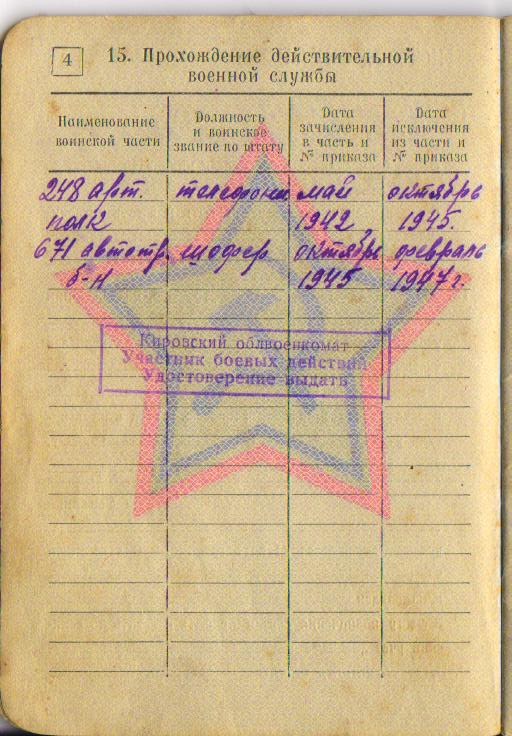 4
15. Прохождение действительной
военной службы
Наименование воинской части
Должность и воинское звание по штату
Дата зачисления в часть и № приказа
Дата исключения из части и № приказа
248 арт. телефонист май октябрь
полк 1942 1945.
671 автотр. шофер октябрь февраль
б-н 1945 1947 г.
Кировский облвоенкомат
Участник боевых действий
Удостоверение выдать